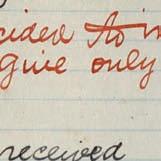 cided to
give only
received